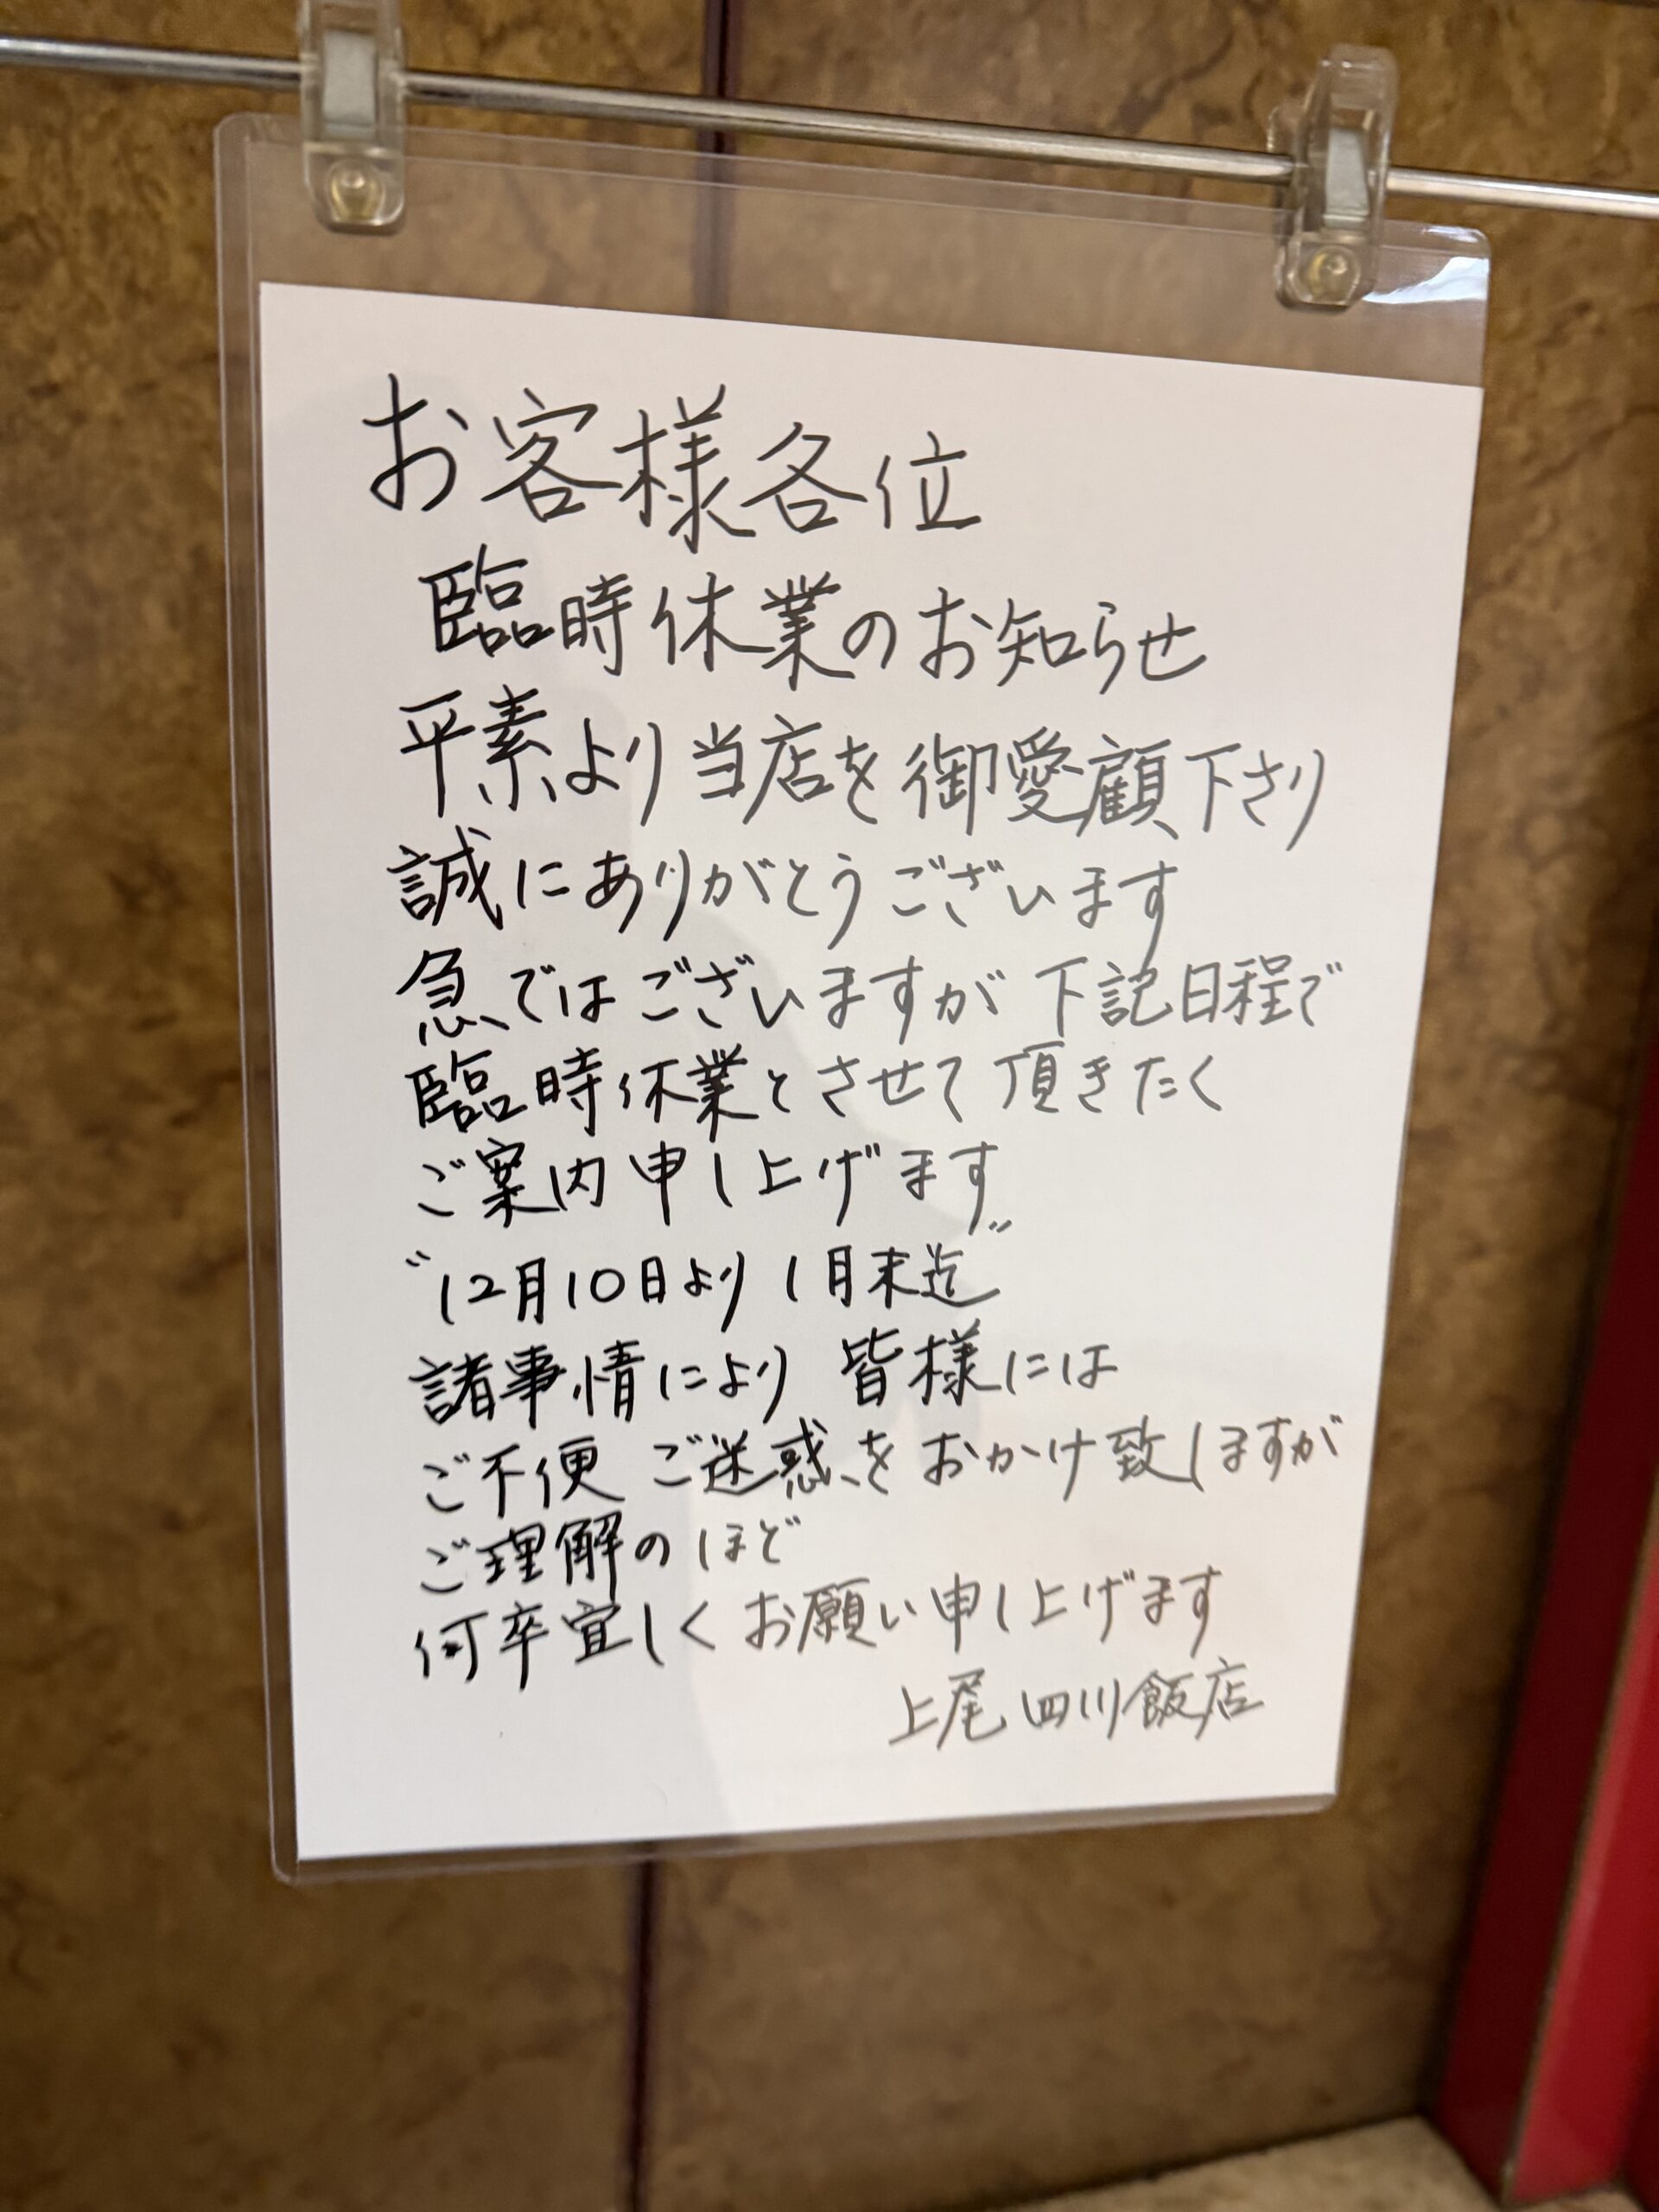 お客様各位
臨時休業のお知らせ
平素より当店を御愛顧下さり
誠にありがとうございます
急ではございますが下記日程で
臨時休業とさせて頂きたく
ご案内申し上げます
"12月10日より1月末迄"
諸事情により 皆様には
ご不便 ご迷惑をおかけ致しますが
ご理解のほど
何卒宜しくお願い申し上げます
上尾 四川飯店